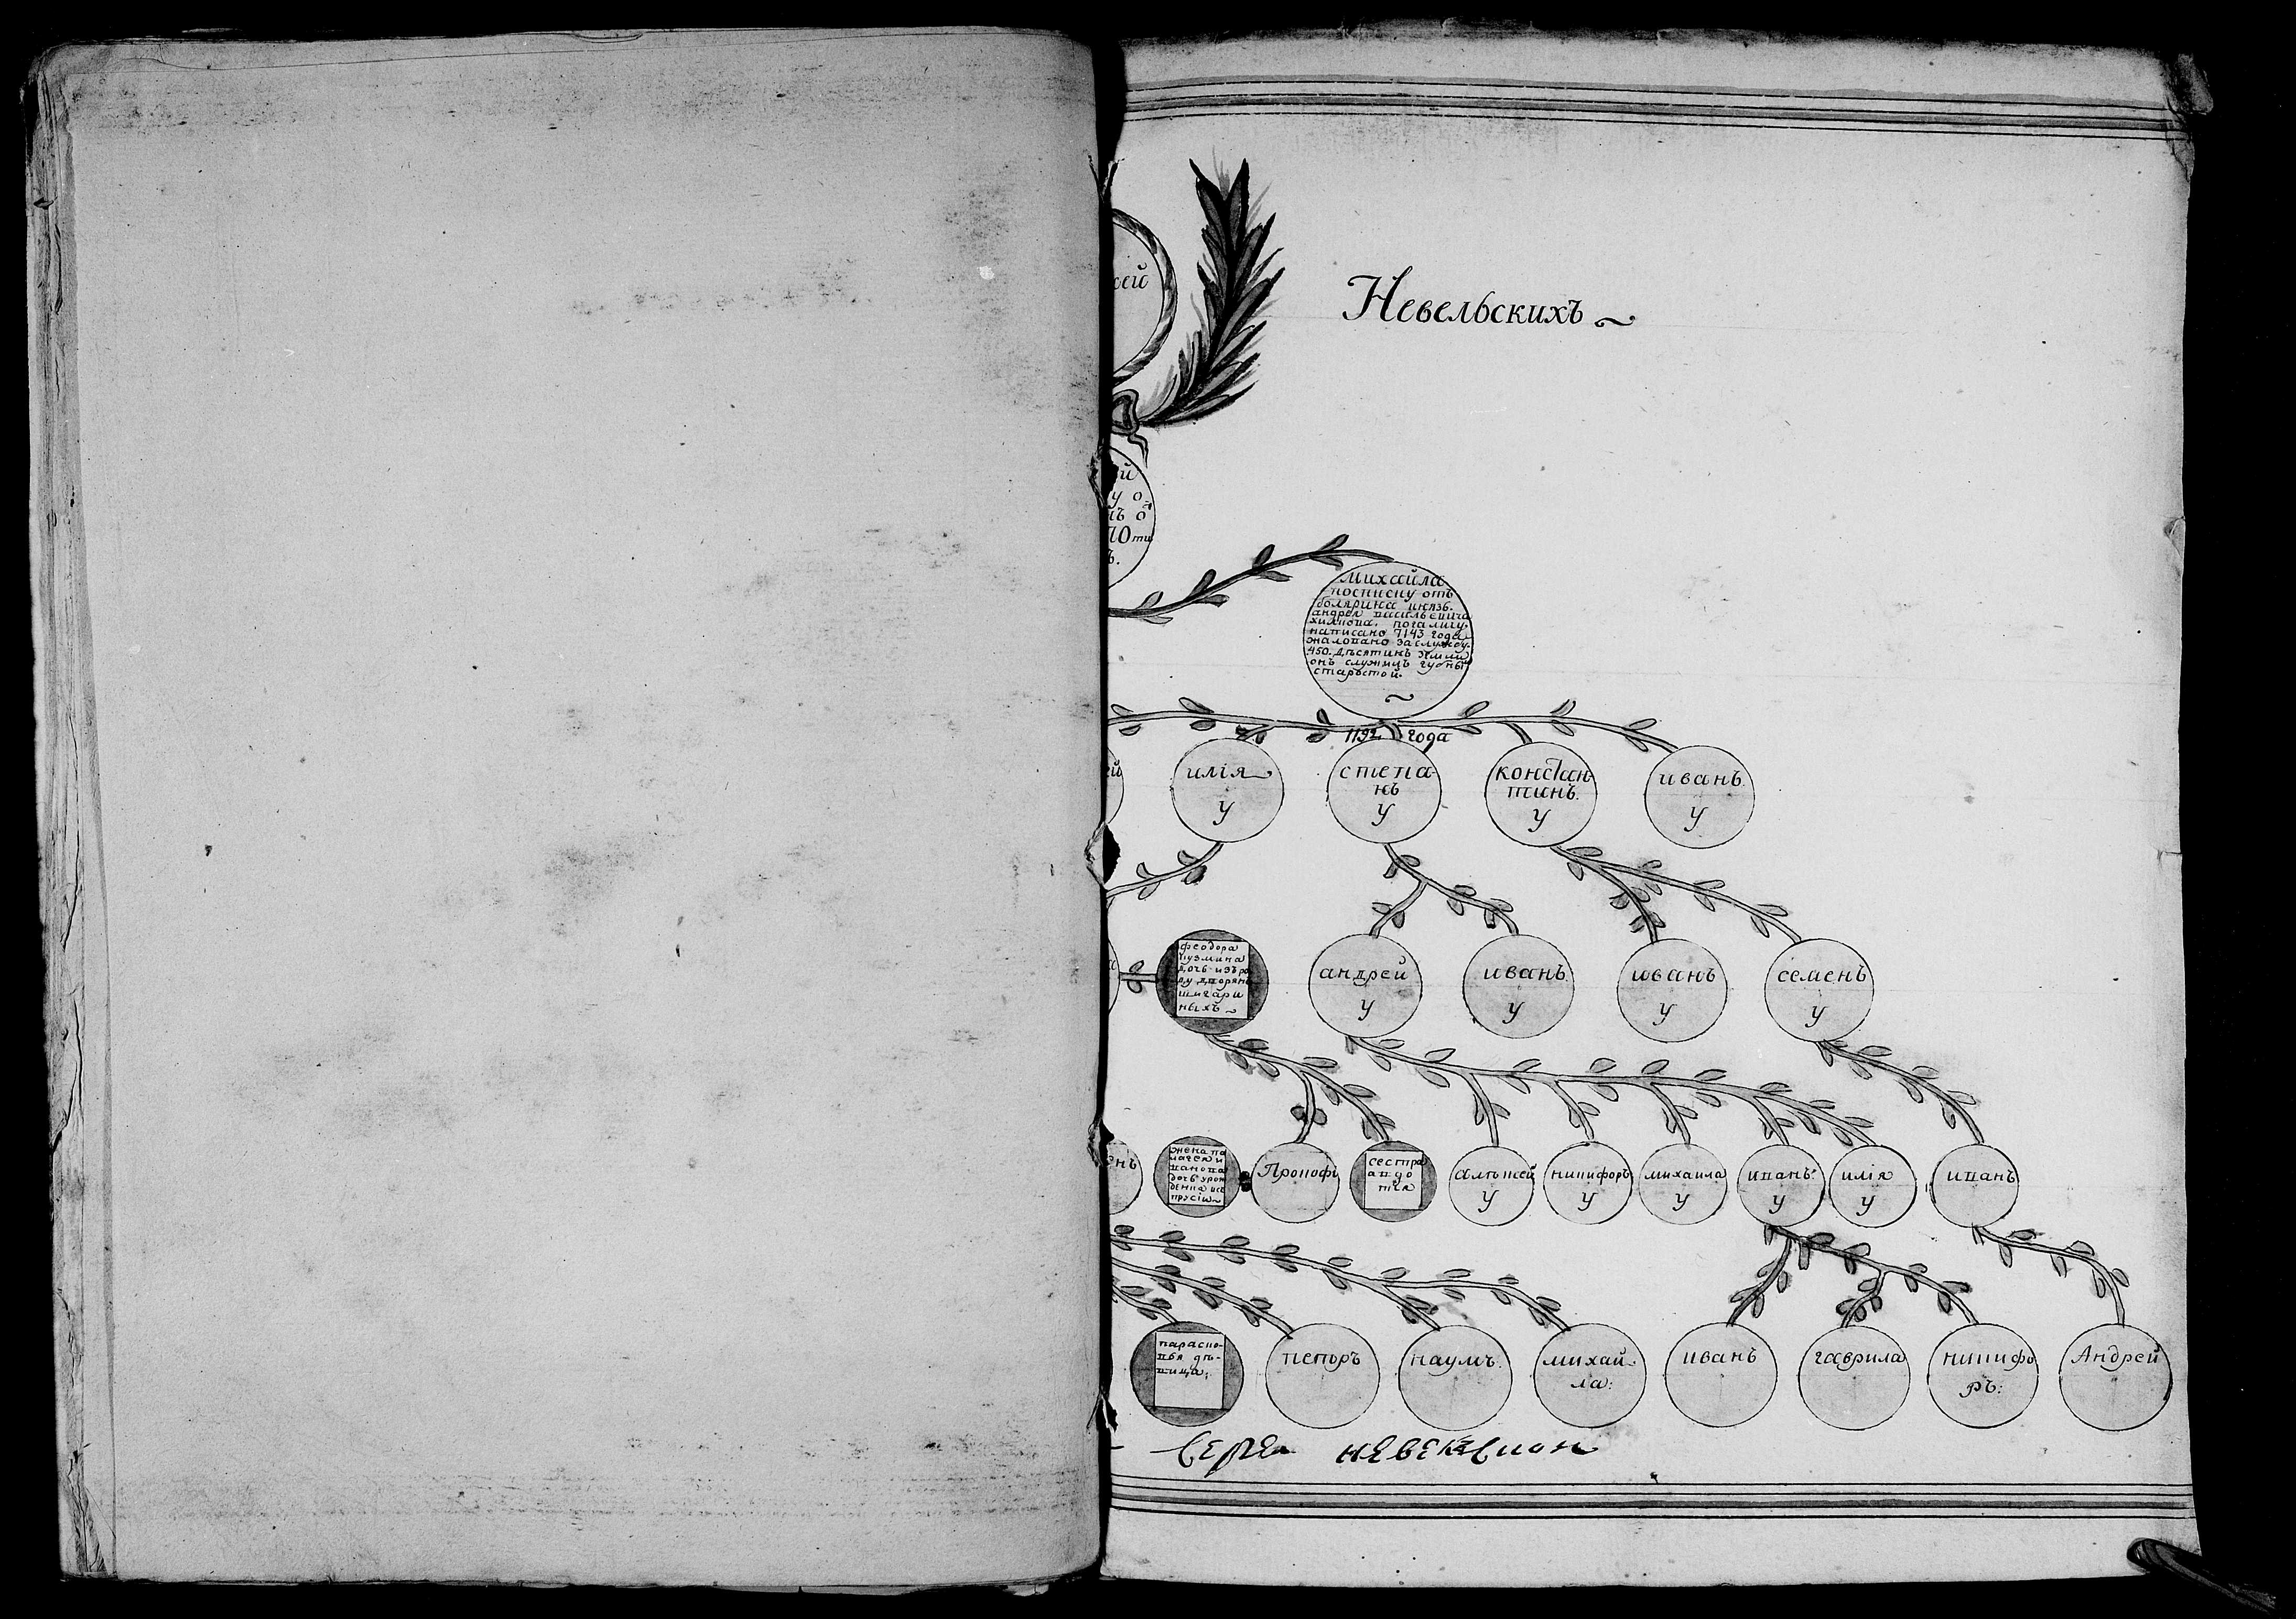 Невельскихъ
михайла
посписку отъ
болярина князь.
андрея васильевича
хилкова. погалигу.
написано 7143 года
жаловано заслужбу.
450. десятинъ земли
онъ служилъ губнымъ
старостой.
1192 года
илія
У
степа
нъ
У
констан
тинъ.
У
иванъ.
У
феодора
кузмина
дочь изъ ро
ду дворянъ
шигари
ныхъ
андрей
У
иванъ.
У
иванъ
У
семенъ
У
енъ
жена па
лагея и
ванова
дочь урож
денна из
прусіи
Прокофи
сестра
авдо
тея
алѣксей
У
никифоръ
У
михаила
У
иванъ
У
илія
У
иванъ
параско-
вья дѣ-
вица;
петръ
наумъ.
михай-
ла:
иванъ
гаврила
никифо
ръ:
Андрей